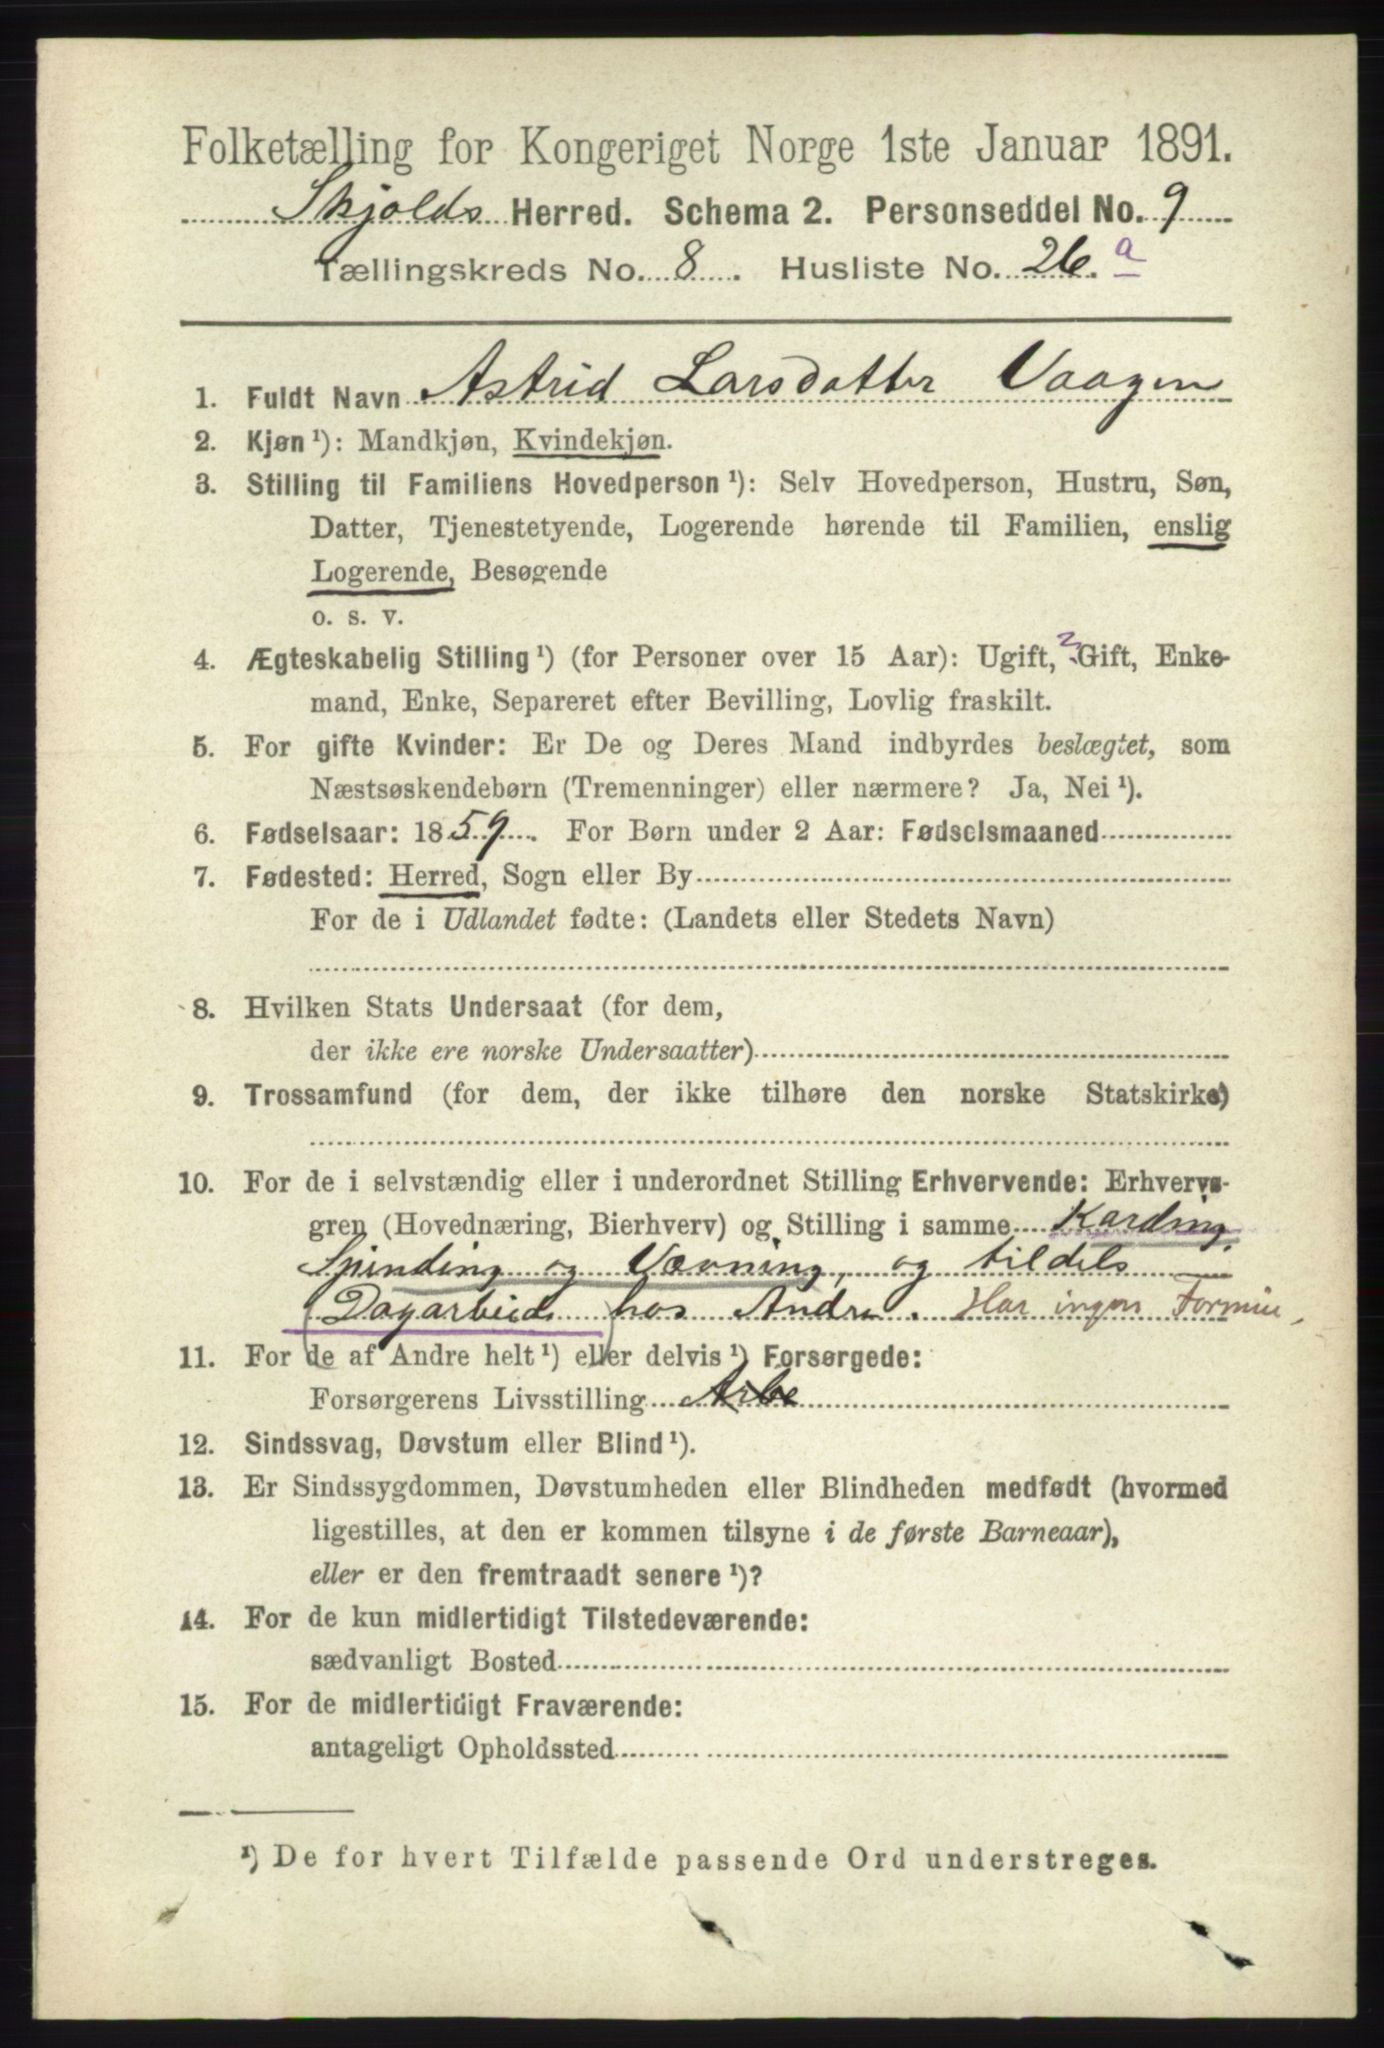 Folketælling for Kongeriget Norge 1ste Januar 1891.
Skjolds Herred. Schema 2. Personseddel No. 9
Tællingskreds No. 8. Husliste No. 26.a
1. Fuldt Navn Astrid Larsdatter Vaagen
2. Kjøn¹): Mandkjøn, Kvindekjøn.
3. Stilling til Familiens Hovedperson¹): Selv Hovedperson, Hustru, Søn,
Datter, Tjenestetyende, Logerende hørende til Familien, enslig
Logerende, Besøgende
o. s. v.
4. Ægteskabelig Stilling¹) (for Personer over 15 Aar): Ugift, ? Gift, Enke-
mand, Enke, Separeret efter Bevilling, Lovlig fraskilt.
5. For gifte Kvinder: Er De og Deres Mand indbyrdes beslægtet, som
Næstsøskendebørn (Tremenninger) eller nærmere? Ja, Nei¹).
6. Fødselsaar: 1859. For Børn under 2 Aar: Fødselsmaaned
7. Fødested: Herred, Sogn eller By
For de i Udlandet fødte: (Landets eller Stedets Navn)
8. Hvilken Stats Undersaat (for dem,
der ikke ere norske Undersaatter)
9. Trossamfund (for dem, der ikke tilhøre den norske Statskirke)
10. For de i selvstændig eller i underordnet Stilling Erhvervende: Erhvervs-
gren (Hovednæring, Bierhverv) og Stilling i samme Karding,
Spinding og Vævning, og tildels
(Dagarbeide) hos Andre. Har ingen Formue.
11. For de af Andre helt¹) eller delvis¹) Forsørgede:
Forsørgerens Livsstilling Arbe
12. Sindssvag, Døvstum eller Blind¹).
13. Er Sindssygdommen, Døvstumheden eller Blindheden medfødt (hvormed
ligestilles, at den er kommen tilsyne i de første Barneaar),
eller er den fremtraadt senere¹)?
14. For de kun midlertidigt Tilstedeværende:
sædvanligt Bosted
15. For de midlertidigt Fraværende:
antageligt Opholdssted
¹) De for hvert Tilfælde passende Ord understreges.